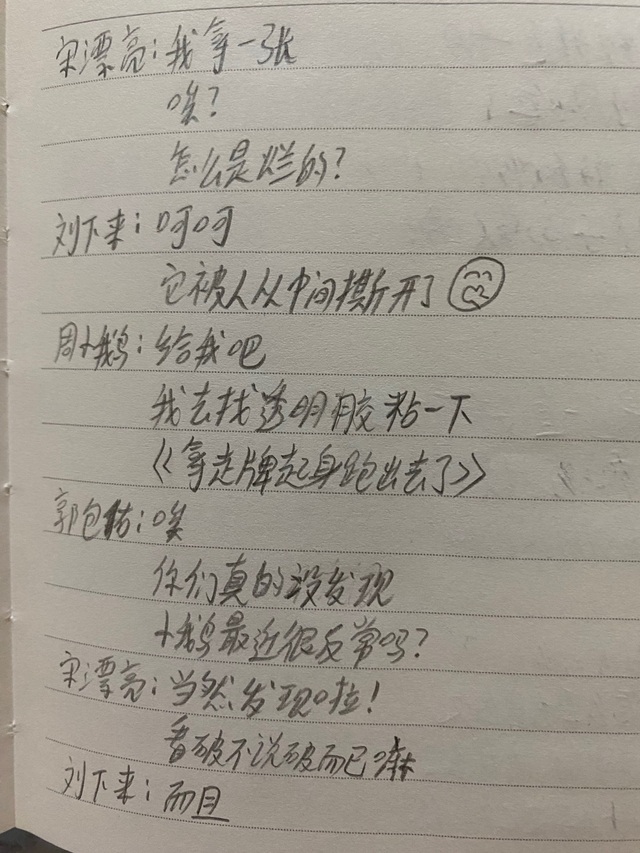 宋漂亮：我拿一张
唉？
怎么是烂的？
刘下来：呵呵
它被人从中间撕开了
周小鹅：给我吧
我去找透明胶粘一下
《《拿走牌起身跑出去了》》
郭包：唉
你们真的没发现
小鹅最近很反常吗？
宋漂亮：当然发现啦！
看破不说破而已嘛
刘下来：而且